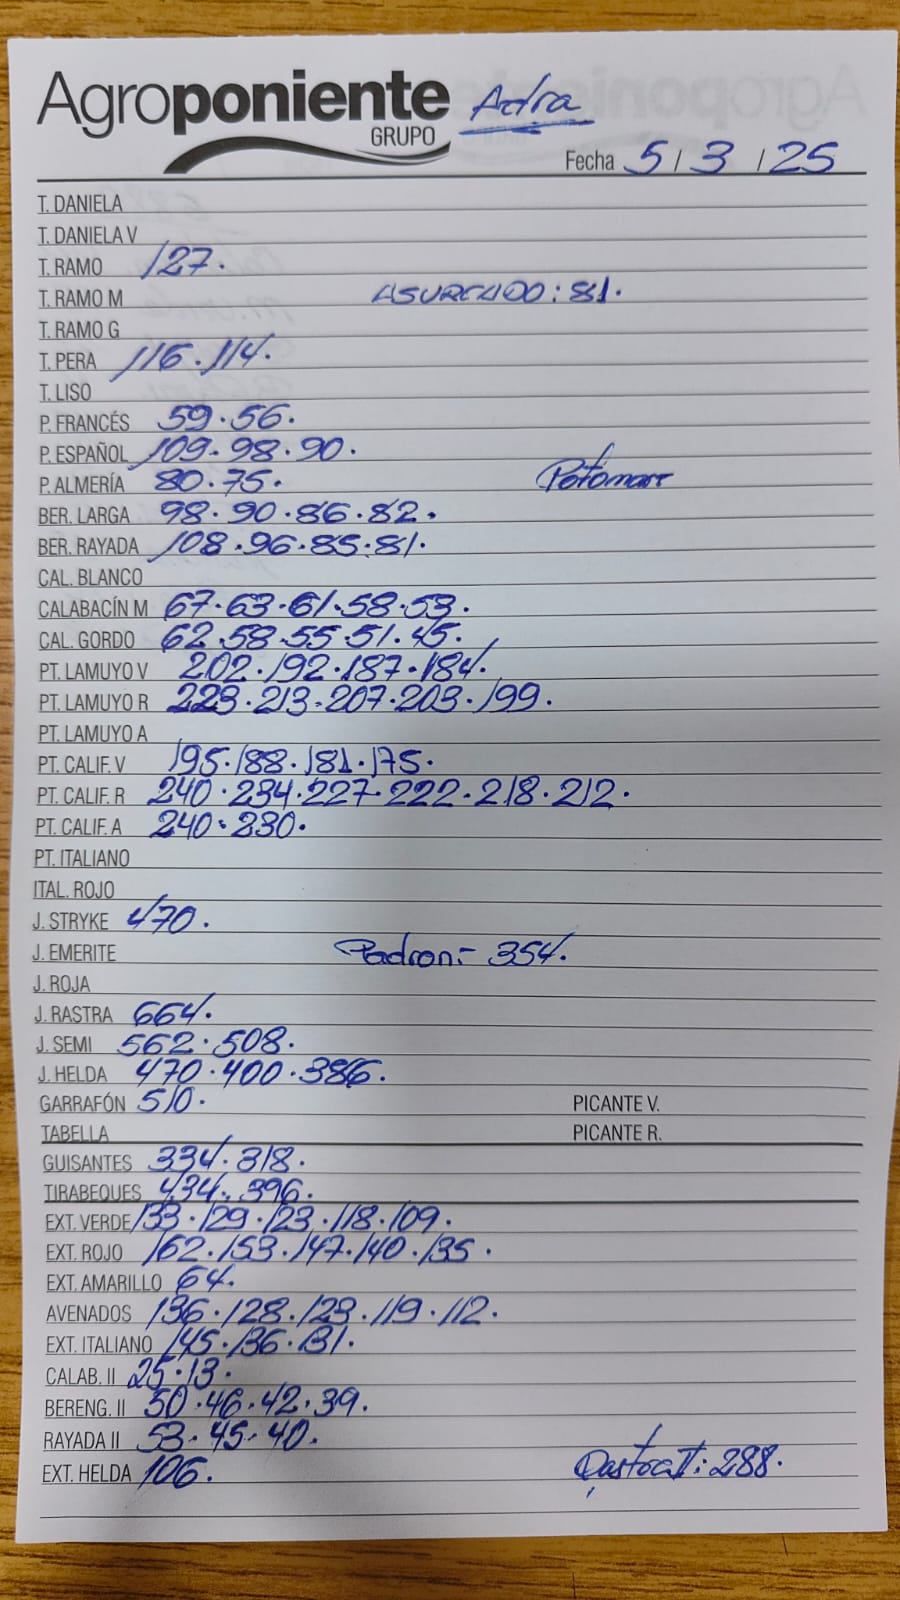 Agroponiente Adra
GRUPO
Fecha 5/3/25
T. DANIELA
T. DANIELA V
T. RAMO 127.
T. RAMO M ASURCADO: 81.
T. RAMO G
T. PERA 116. 114.
T. LISO
P. FRANCÉS 59. 56.
P. ESPAÑOL 109. 98. 90.
P. ALMERÍA 80. 75.
BER. LARGA 98. 90. 86. 82.
BER. RAYADA 108. 96. 85. 81.
CAL. BLANCO
CALABACÍN M 67. 63. 61. 58. 53.
CAL. GORDO 62. 58. 55. 51. 45.
PT. LAMUYO V 202. 192. 187. 184.
PT. LAMUYO R 223. 213. 207. 203. 199.
PT. LAMUYO A
PT. CALIF. V 195. 188. 181. 175.
PT. CALIF. R 240. 234. 227. 222. 218. 212.
PT. CALIF. A 240. 230.
PT. ITALIANO
ITAL. ROJO
J. STRYKE 470.
J. EMERITE Padron:- 354.
J. ROJA
J. RASTRA 664.
J. SEMI 562. 508.
J. HELDA 470. 400. 386.
GARRAFÓN 510. PICANTE V.
TABELLA PICANTE R.
GUISANTES 334. 318.
TIRABEQUES 434. 396.
EXT. VERDE 133. 129. 123. 118. 109.
EXT. ROJO 162. 153. 147. 140. 135.
EXT. AMARILLO 64.
AVENADOS 136. 128. 123. 119. 112.
EXT. ITALIANO 145. 136. 131.
CALAB. II 25. 13.
BERENG. II 50. 46. 42. 39.
RAYADA II 53. 45. 40.
EXT. HELDA 106. 288.